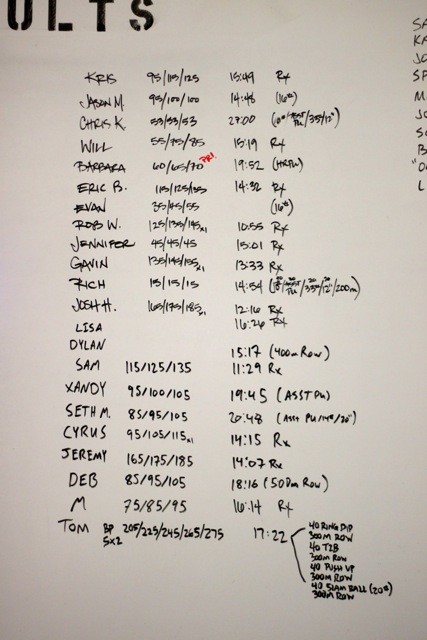 ULTS
KRIS 95/115/125 15:49 Rx
JASON M. 95/100/100 14:48 (16#)
CHRIS K. 53/53/53 27:00
WILL 55/75/85 15:19 Rx
BARBARA 60/65/70 PR! 19:52 (HRPU)
ERIC B. 115/125/135 14:32 Rx
EVAN 35/45/55 (16#)
ROB W. 125/135/145x1 10:55 Rx
JENNIFER 45/45/45 15:01 Rx
GAVIN 135/145/155x1 13:33 Rx
RICH 15/15/15 14:54
JOSH H. 165/175/185x1 12:16 Rx
LISA 16:26 Rx
DYLAN 15:17 (400m Row)
SAM 115/125/135 11:29 Rx
XANDY 95/100/105 19:45 (ASST PU)
SETH M. 85/95/105 20:48 (Asst PU/14#/20")
CYRUS 95/105/115x1 14:15 Rx
JEREMY 165/175/185 14:07 Rx
DEB 85/95/105 18:16 (500m Row)
M 75/85/95 16:14 Rx
TOM BP 5x2 205/225/245/265/275 17:22
40 RING DIP
300M ROW
40 T2B
300M ROW
40 PUSH UP
300M ROW
40 SLAM BALL (20#)
300M ROW
SA
KA
JO
SP
M
JO
SC
B
"O
L